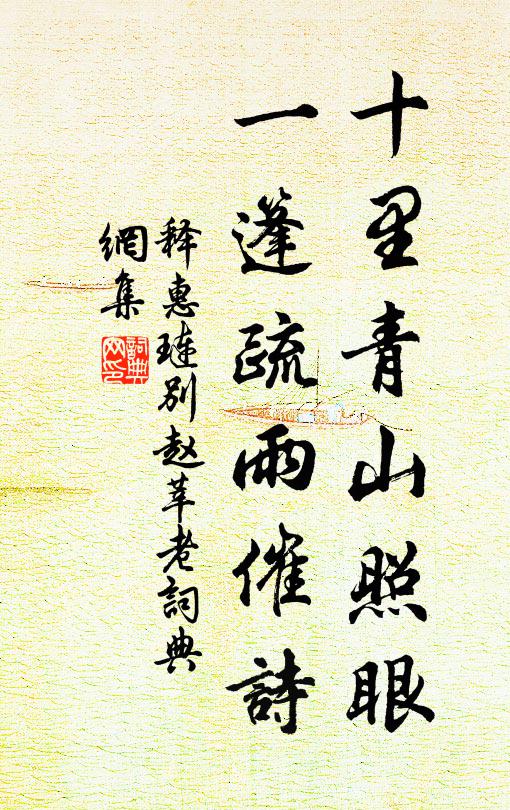 十里青山照眼
一篷疏雨催詩
释惠琏别赵莘老詞典
網集
詞典
网印